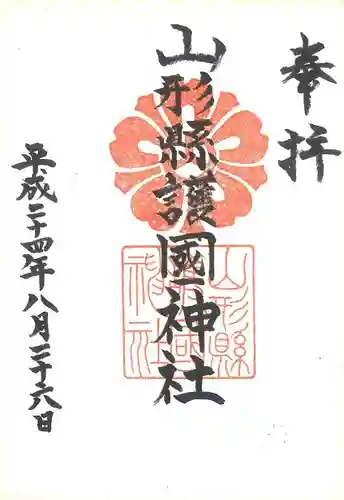 奉拝
山形縣護國神社
平成二十四年八月二十六日
山形縣
護國
神社